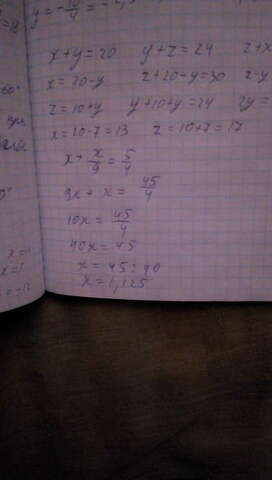 x+y=20 y+z=24 z+x
x=20-y z+20-y=30 z-y
z=10+y y+10+y=24 2y=
x=20-7=13 z=10+7=17
x+x/9=5/4
9x+x=45/4
10x=45/4
40x=45
x=45:40
x=1,125